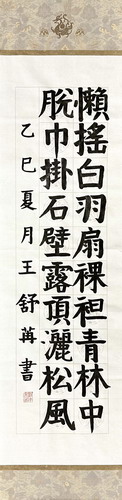 懶搖白羽扇裸袒青林中
脫巾掛石壁露頂灑松風
乙巳夏月王舒苒書